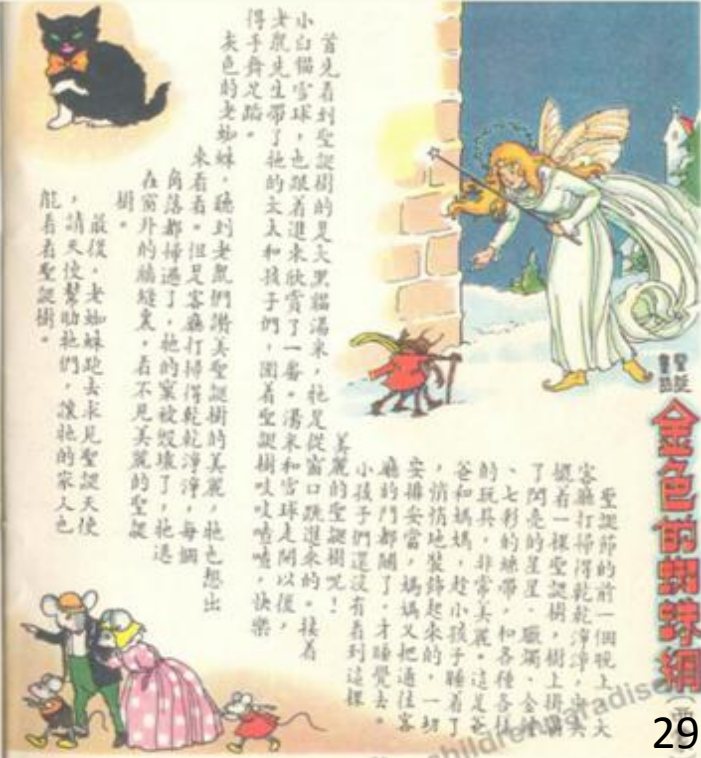 聖誕
童話
金色的蜘蛛網
聖誕節的前一個晚上，大
客廳打掃得乾乾淨淨，
擺着一棵聖誕樹，樹上掛滿
了閃亮的星星、臘燭、金鐘
、七彩的絲帶，和各種各樣
的玩具，非常美麗。這是爸
爸和媽媽，趁小孩子睡着了
，悄悄地裝飾起來的，一切
安排妥當，媽媽又把通往客
廳的門都關了，才睡覺去。
小孩子們還沒有看到這棵
美麗的聖誕樹呢！
首先看到聖誕樹的是大黑貓湯米，牠是從窗口跳進來的。接着
小白貓雪球，也跟着進來欣賞了一番。湯米和雪球走開以後，
老鼠先生帶了牠的太太和孩子們，圍着聖誕樹吱吱喳喳，快樂
得手舞足蹈。
灰色的老蜘蛛，聽到老鼠們讚美聖誕樹的美麗，牠也想出
來看看。但是客廳打掃得乾乾淨淨，每個
角落都掃過了，牠的窠被毀壞了，牠逃
在窗外的牆縫裏，看不見美麗的聖誕
樹。
最後，老蜘蛛跑去求見聖誕天使
，請天使幫助牠們，讓牠的家人也
能看看聖誕樹。
29